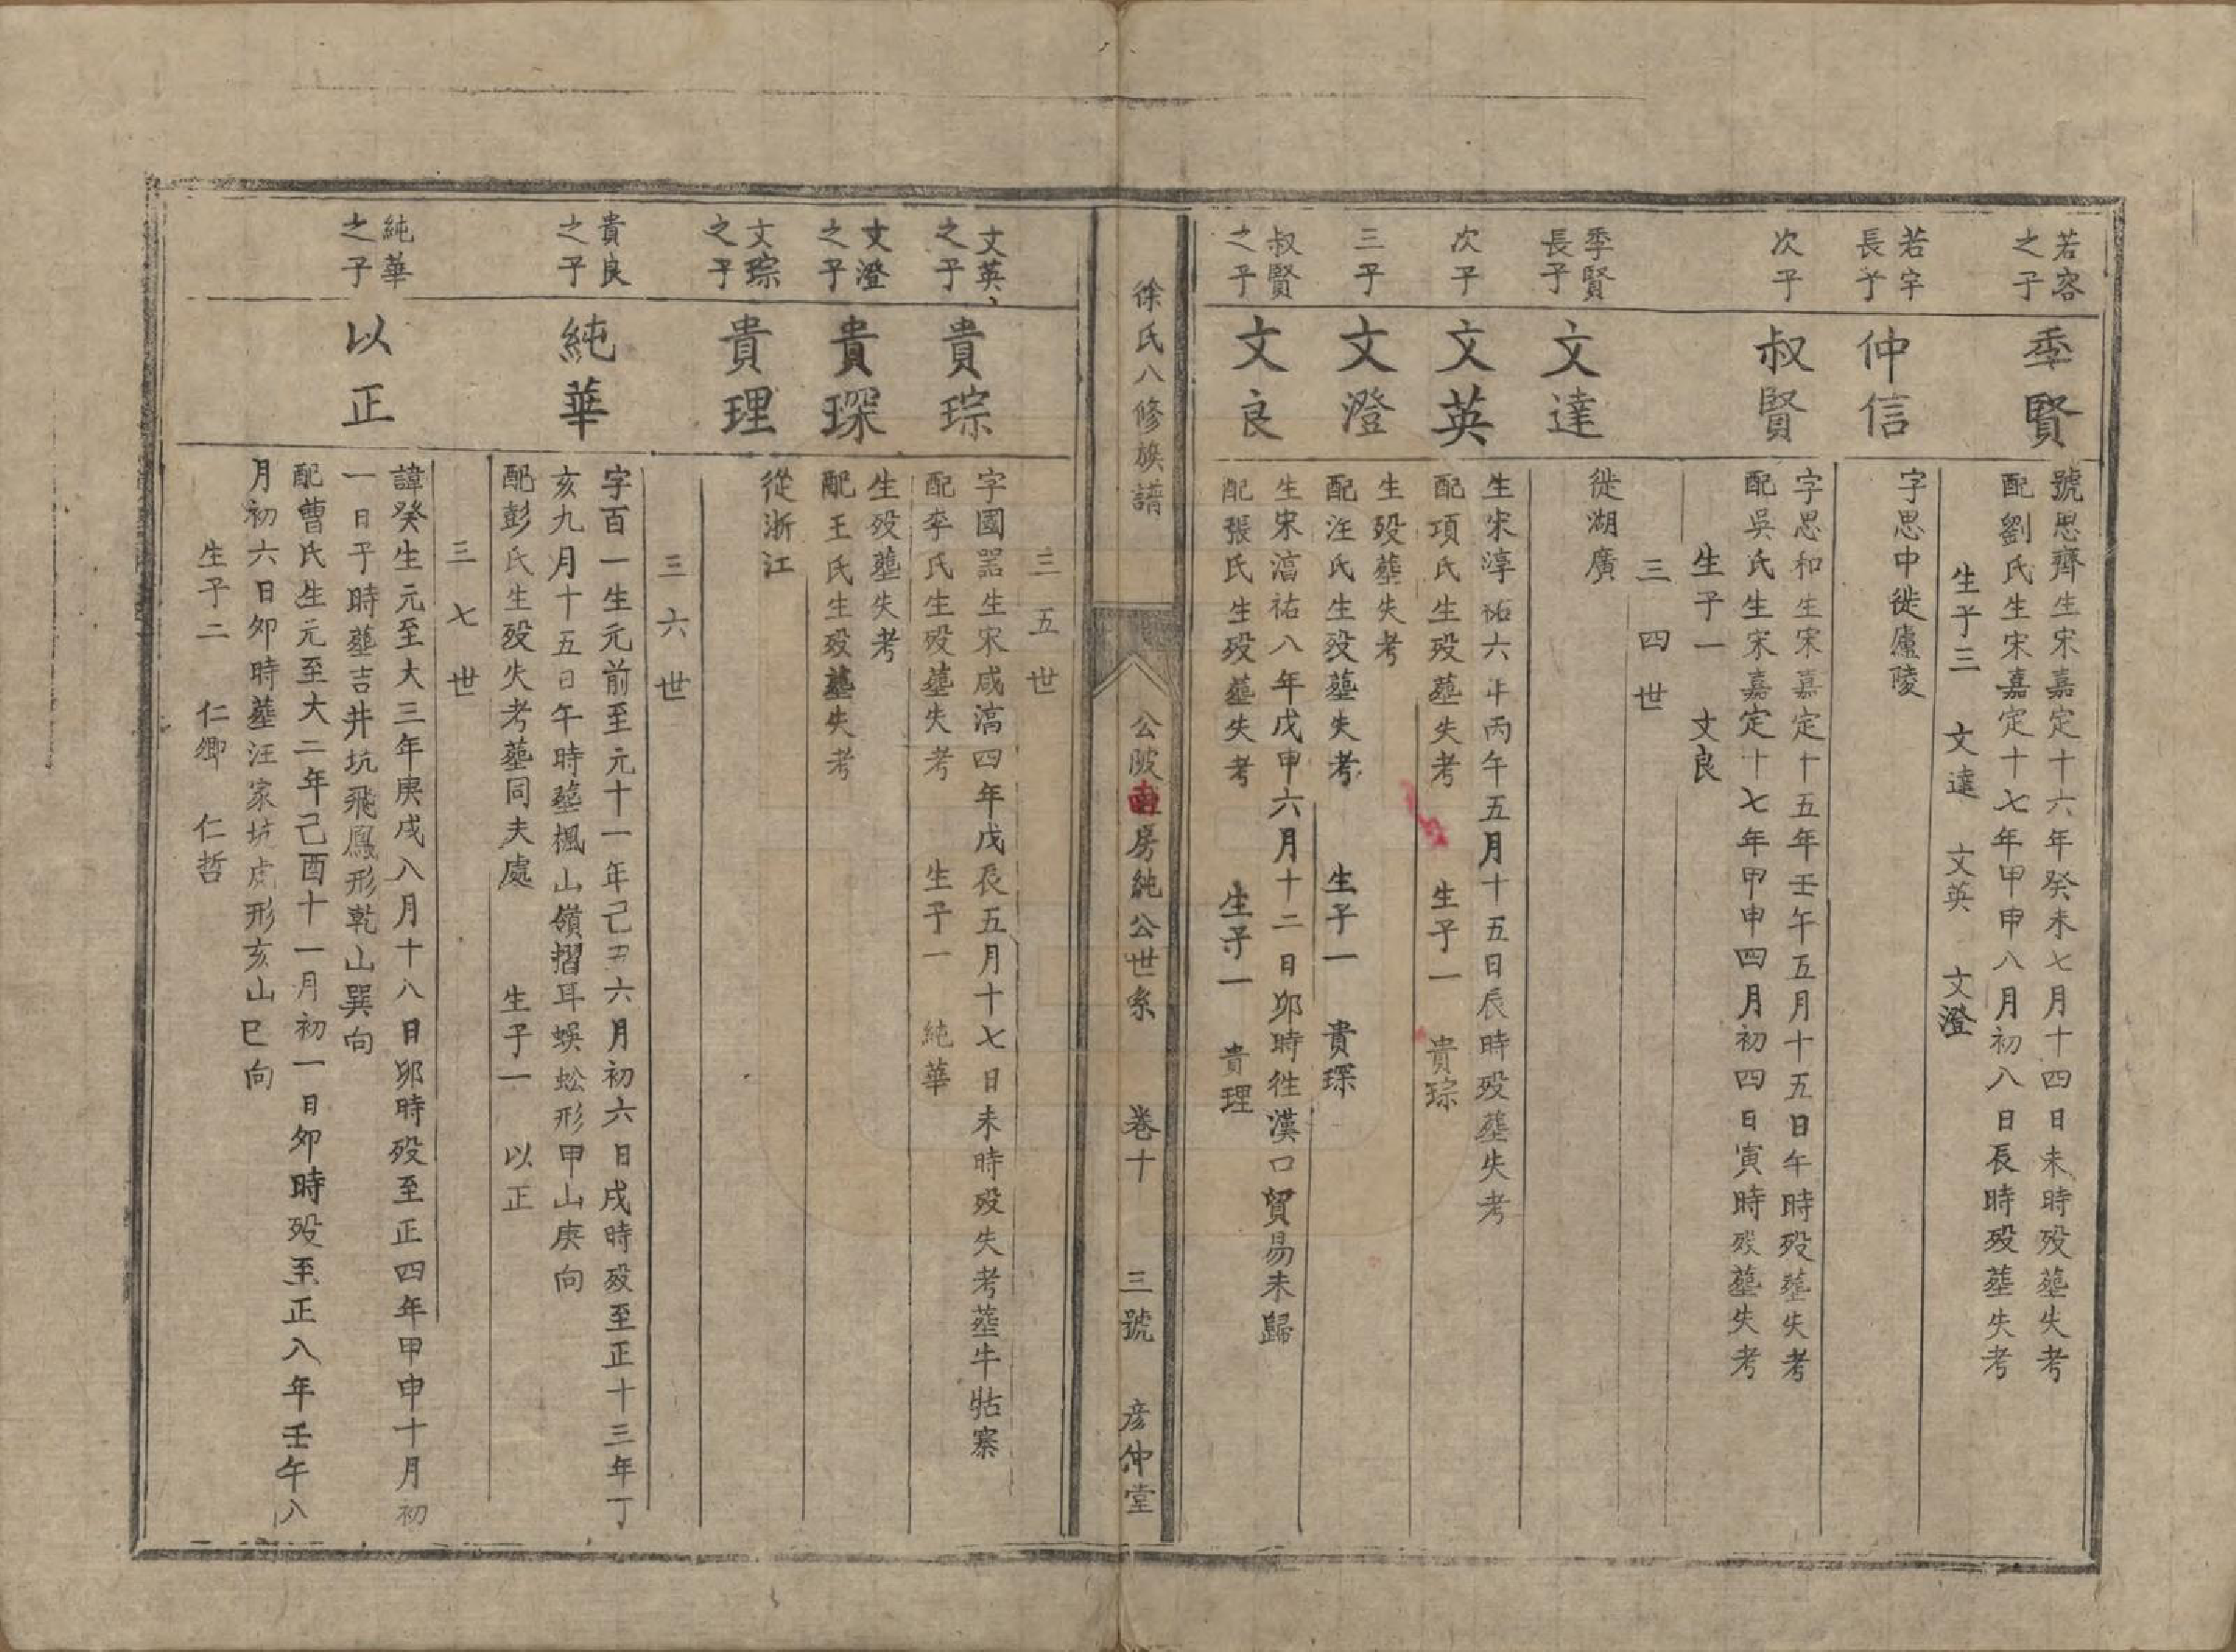 若容
之子
季賢
號思齊生宋嘉定十六年癸未七月十四日未時殁塟失考
配劉氏生宋嘉定十七年甲申八月初八日辰時殁塟失考
生子三　文達　文英　文澄
若宇
長子
仲信
字思中徙廬陵
次子
叔賢
字思和生宋嘉定十五年壬午五月十五日午時殁塟失考
配吳氏生宋嘉定十七年甲申四月初四日寅時殁塟失考
生子一　文良
三四世
季賢
長子
文達
徙湖廣
次子
文英
生宋淳祐六年丙午五月十五日辰時殁塟失考
配項氏生殁塟失考　生子一　貴琮
三子
文澄
生殁塟失考
配汪氏生殁塟失考　生子一　貴琛
叔賢
之子
文良
生宋淳祐八年戊申六月十二日卯時徃漢口貿易未歸
配張氏生殁塟失考　生子一　貴理
徐氏八修族譜
公陂南房純公世系　卷十　三號　彦仲堂
三五世
文英
之子
貴琮
字國器生宋咸淳四年戊辰五月十七日未時殁失考塟牛牯寨
配李氏生殁塟失考　生子一　純華
文澄
之子
貴琛
生殁塟失考
配王氏生殁塟失考
文琮
之子
貴理
從浙江
三六世
貴良
之子
純華
字百一生元前至元十一年己丑六月初六日戌時殁至正十三年丁
亥九月十五日午時塟楓山嶺摺耳蜈蚣形甲山庚向
配彭氏生殁失考塟同夫處　生子一　以正
三七世
純華
之子
以正
諱癸生元至大三年庚戌八月十八日卯時殁至正四年甲申十月初
一日子時塟吉井坑飛鳳形乾山巽向
配曹氏生元至大二年己酉十一月初一日卯時殁至正八年壬午八
月初六日卯時塟汪家坑虎形亥山巳向
生子二　仁卿　仁哲